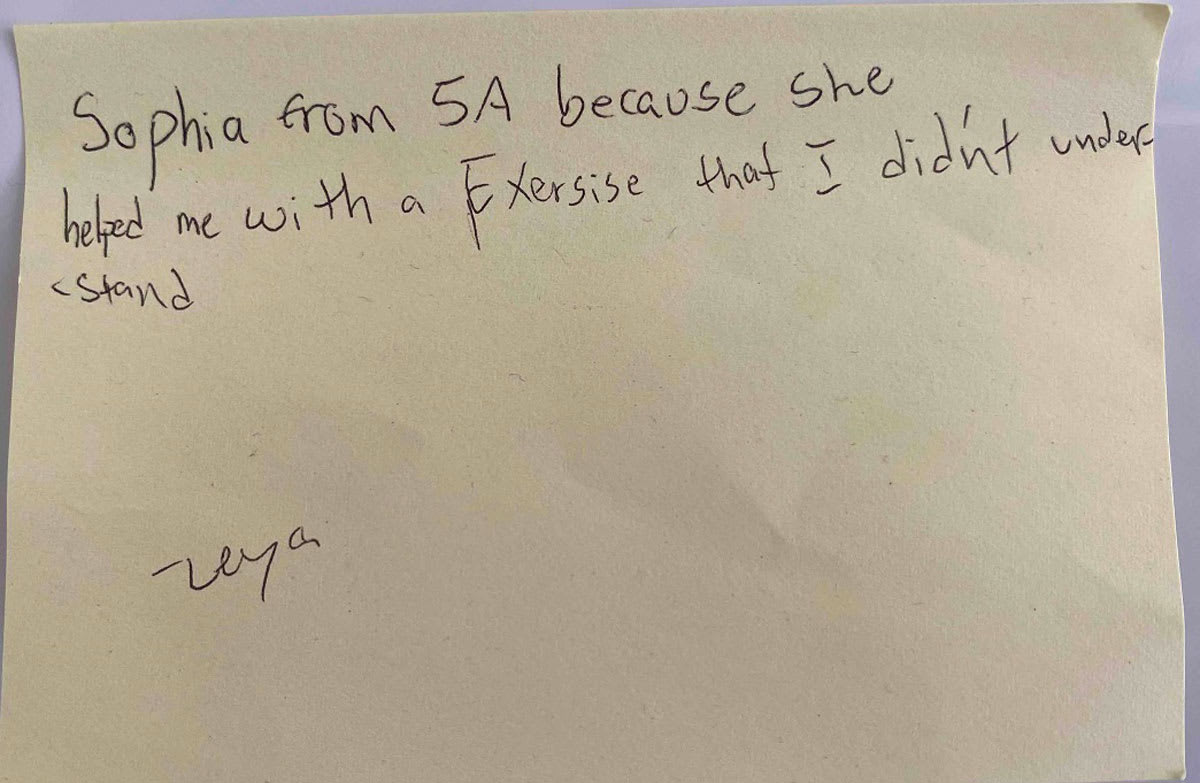 Sophia from 5A because she
helped me with a Exersise that I didn't under-
-stand
zeya